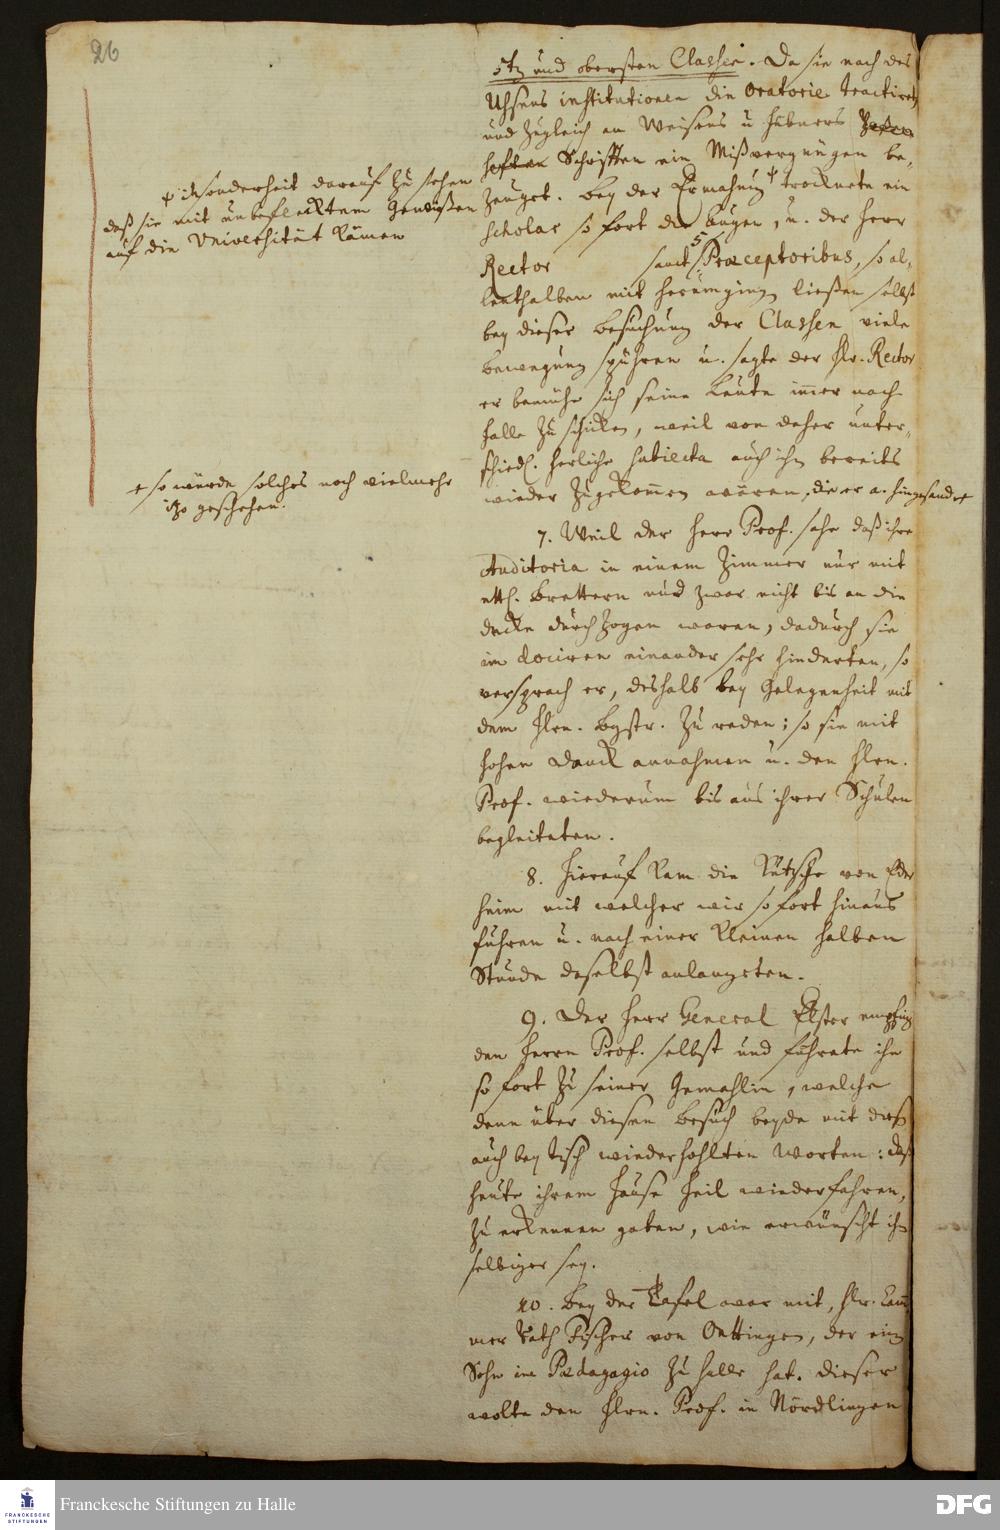 26
5te und obersten Classen. Da sie nach des
Uhsens institutionen die Oratorie tractiret
und zugleich an Weisens u Hübners
Schrifften ein Mißvergnügen be-
zeuget. Bey der Ermahnung trocknete ein
Scholar so fort die Augen, u. der Herr
Rector samt 5 Præceptoribus, so al-
lenthalben mit herumging ließen selbst
bey dieser Besuchung der Classen viele
bewegung spühren u. sagte der Hr. Rector
er bemühe sich seine Leute immer nach
Halle zu schicken, weil von daher unter-
schiedl. herliche subiecta auch ihm bereits
wieder zugekommen wären, die er a. hingesandt
ψ insonderheit darauf zu sehen
daß sie mit unbeflecktem Gewißen
auf die Universität kämen
+ so würde solches noch vielmehr
itzo geschehen.
7. Weil der Herr Prof. sahe daß ihre
Auditoria in einem Zimmer nur mit
ettl. Brettern und zwar nicht bis an die
decke durchzogen waren, dadurch sie
im dociren einander sehr hinderten, so
versprach er, deshalb bey Gelegenheit mit
dem Hrn. Bgstr. zu reden; so sie mit
hohen Danck annahmen u. den Hrn.
Prof. wiederum bis aus ihrer Schulen
begleiteten.
8. Hierauf kam die Kutsche von Eder
heim mit welcher wir sofort hinaus
fuhren u. nach einer kleinen halben
Stunde daselbst anlangeten.
9. Der Herr General Elster empfing
den Herrn Prof. selbst und führete ihn
so fort zu seiner Gemahlin, welche
denn über diesen Besuch beyde mit dies
auch bey Tisch wiederhohlten Worten: daß
heute ihrem Hause Heil wiederfahren,
zu erkennen gaben, wie erwünscht ihn
selbiger sey.
10. Bey der Tafel war mit, Hr. Cam
mer Rath Fischer von Oettingen, der ein
Sohn im Pædagogio zu Halle hat. Dieser
wolte den Hrn. Prof. in Nördlingen
FRANCKESCHE
STIFTUNGEN
Franckesche Stiftungen zu Halle
DFG